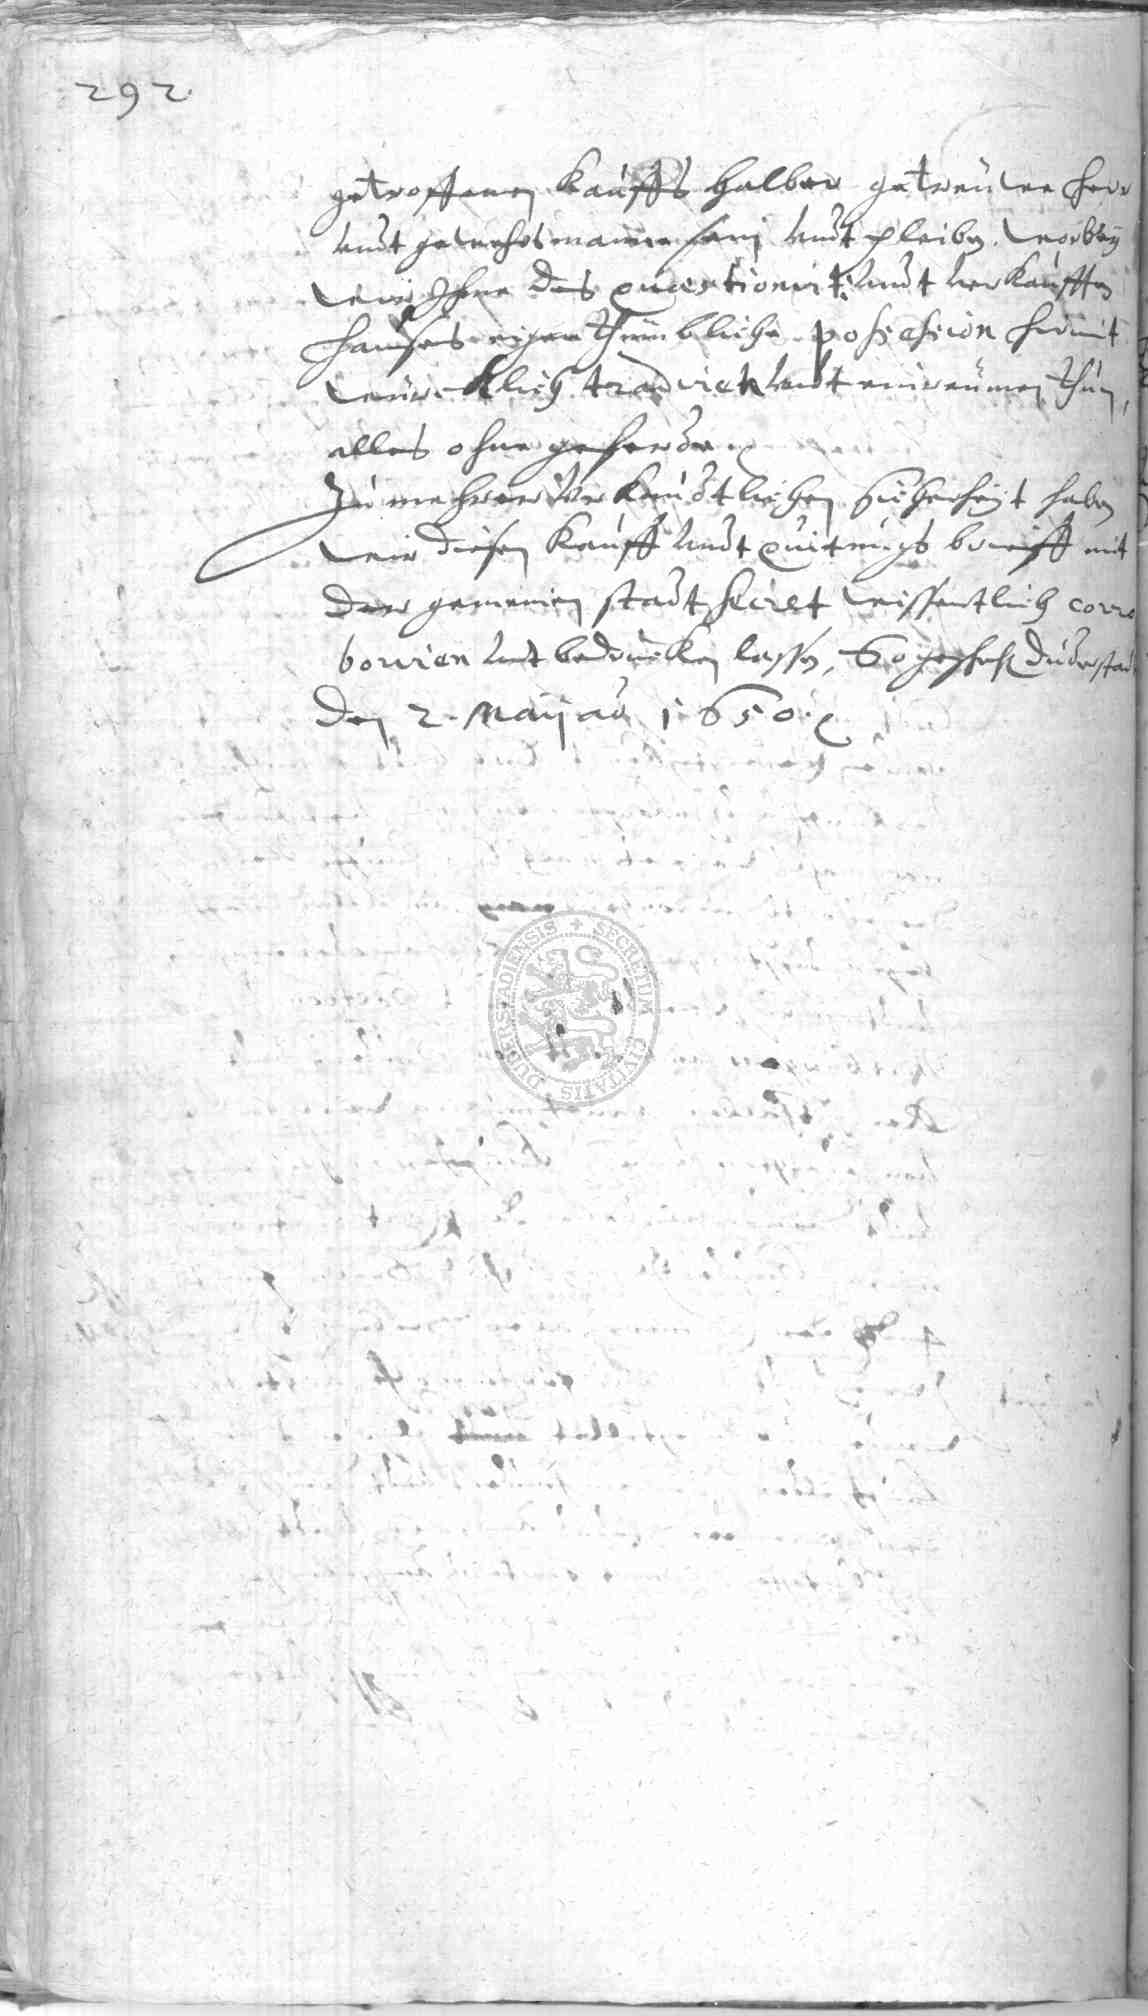 292.
getroffenen Kauffs halber getreuwe herr
undt gewehrsmanne sein undt pleiben. Worbey
wir Ihne des quaestionirt: undt verkaufften
Hauses eigenthümbliche possession hiemit
würcklich tradiren undt einreümen thun,
alles ohne geferde.
Zu mehrer Uhrkundtlichen Sicherheyt haben
wir diesen Kauff undt quitungs brieff mit
der gemeinen stadt Secret wissentlich corro
boriren undt bedrucken lassen, So geschehen Duderstadt
den 2. Maij ao 1650.
SECRETUM CIVITATIS DUDERSTADIENSIS